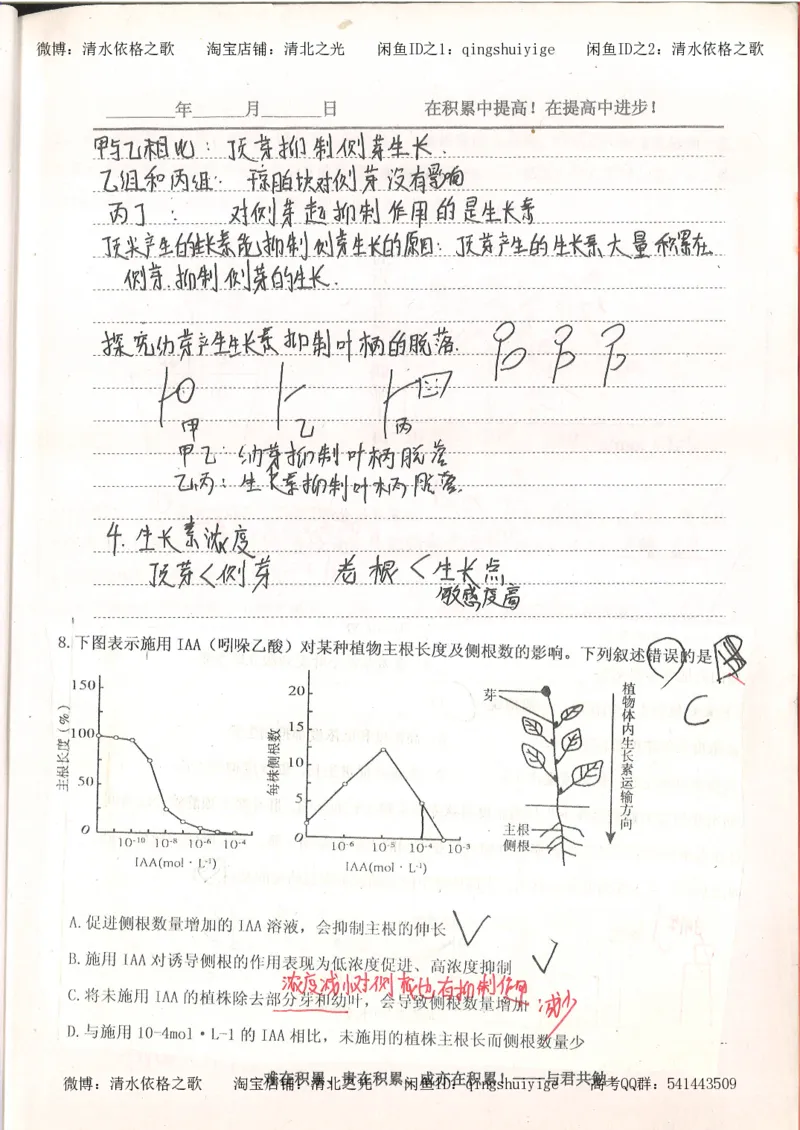 微博：清水依格之歌 淘宝店铺：清北之光 闲鱼ID之1：qingshuiyige 闲鱼ID之2：清水依格之歌
年 月 日 在积累中提高！在提高中进步！
甲与乙相比：顶芽抑制侧芽生长．
乙组和丙组：琼脂块对侧芽没有影响
丙丁：对侧芽起抑制作用的是生长素
顶尖产生的生长素能抑制侧芽生长的原因：顶芽产生的生长素大量积累在
侧芽．抑制侧芽的生长．
探究幼芽产生生长素抑制叶柄的脱落．
甲 乙 丙
甲乙：幼芽抑制叶柄脱落
乙丙：生长素抑制叶柄脱落．
4.生长素浓度
顶芽<侧芽 老根<生长点
敏感度高
8.下图表示施用 IAA（吲哚乙酸）对某种植物主根长度及侧根数的影响。下列叙述错误的是
C
主根长度（%）
150
100
50
0
10-10 10-8 10-6 10-4
IAA(mol·L-1)
每株侧根数
20
15
10
5
0
10-6 10-5 10-4 10-3
IAA(mol·L-1)
芽
主根
侧根
植物体内生长素运输方向
A.促进侧根数量增加的 IAA 溶液，会抑制主根的伸长
B.施用 IAA 对诱导侧根的作用表现为低浓度促进、高浓度抑制
浓度减小对侧根也有抑制作用
C.将未施用 IAA 的植株除去部分芽和幼叶，会导致侧根数量增加 减少
D.与施用 10-4mol·L-1 的 IAA 相比，未施用的植株主根长而侧根数量少
难在积累，贵在积累，成亦在积累！——与君共勉
微博：清水依格之歌 淘宝店铺：清北之光 闲鱼ID：qingshuiyige 高考QQ群：541443509